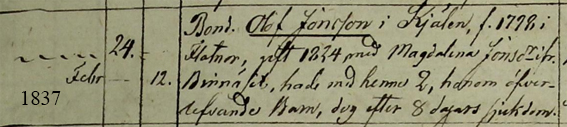 Bond. Olof Jönsson i Kjälen, f. 1798 i
24. Flatnor, gift 1824 med Magdalena Jönsdtr.
Febr 12. Binnäset, hade med henne 2, honom öfver-
1837 lefvande Barn, dog efter 8 dagars sjukdom.